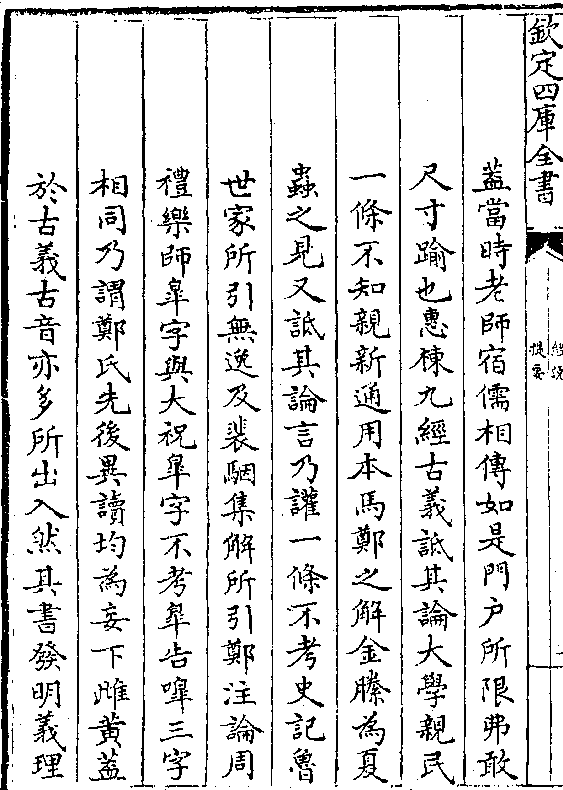 欽定四庫全書
經說
提要
葢當時老師宿儒相傳如是門户所限弗敢
尺寸踰也惠棟九經古義詆其論大學親民
一條不知親新通用本馬鄭之解金縢為夏
蟲之見又詆其論言乃讙一條不考史記魯
世家所引無逸及裴駰集解所引鄭注論周
禮樂師皐字與大祝皐字不考皐告嘷三字
相同乃謂鄭氏先後異讀均為妄下雌黄葢
於古義古音亦多所出入然其書發明義理